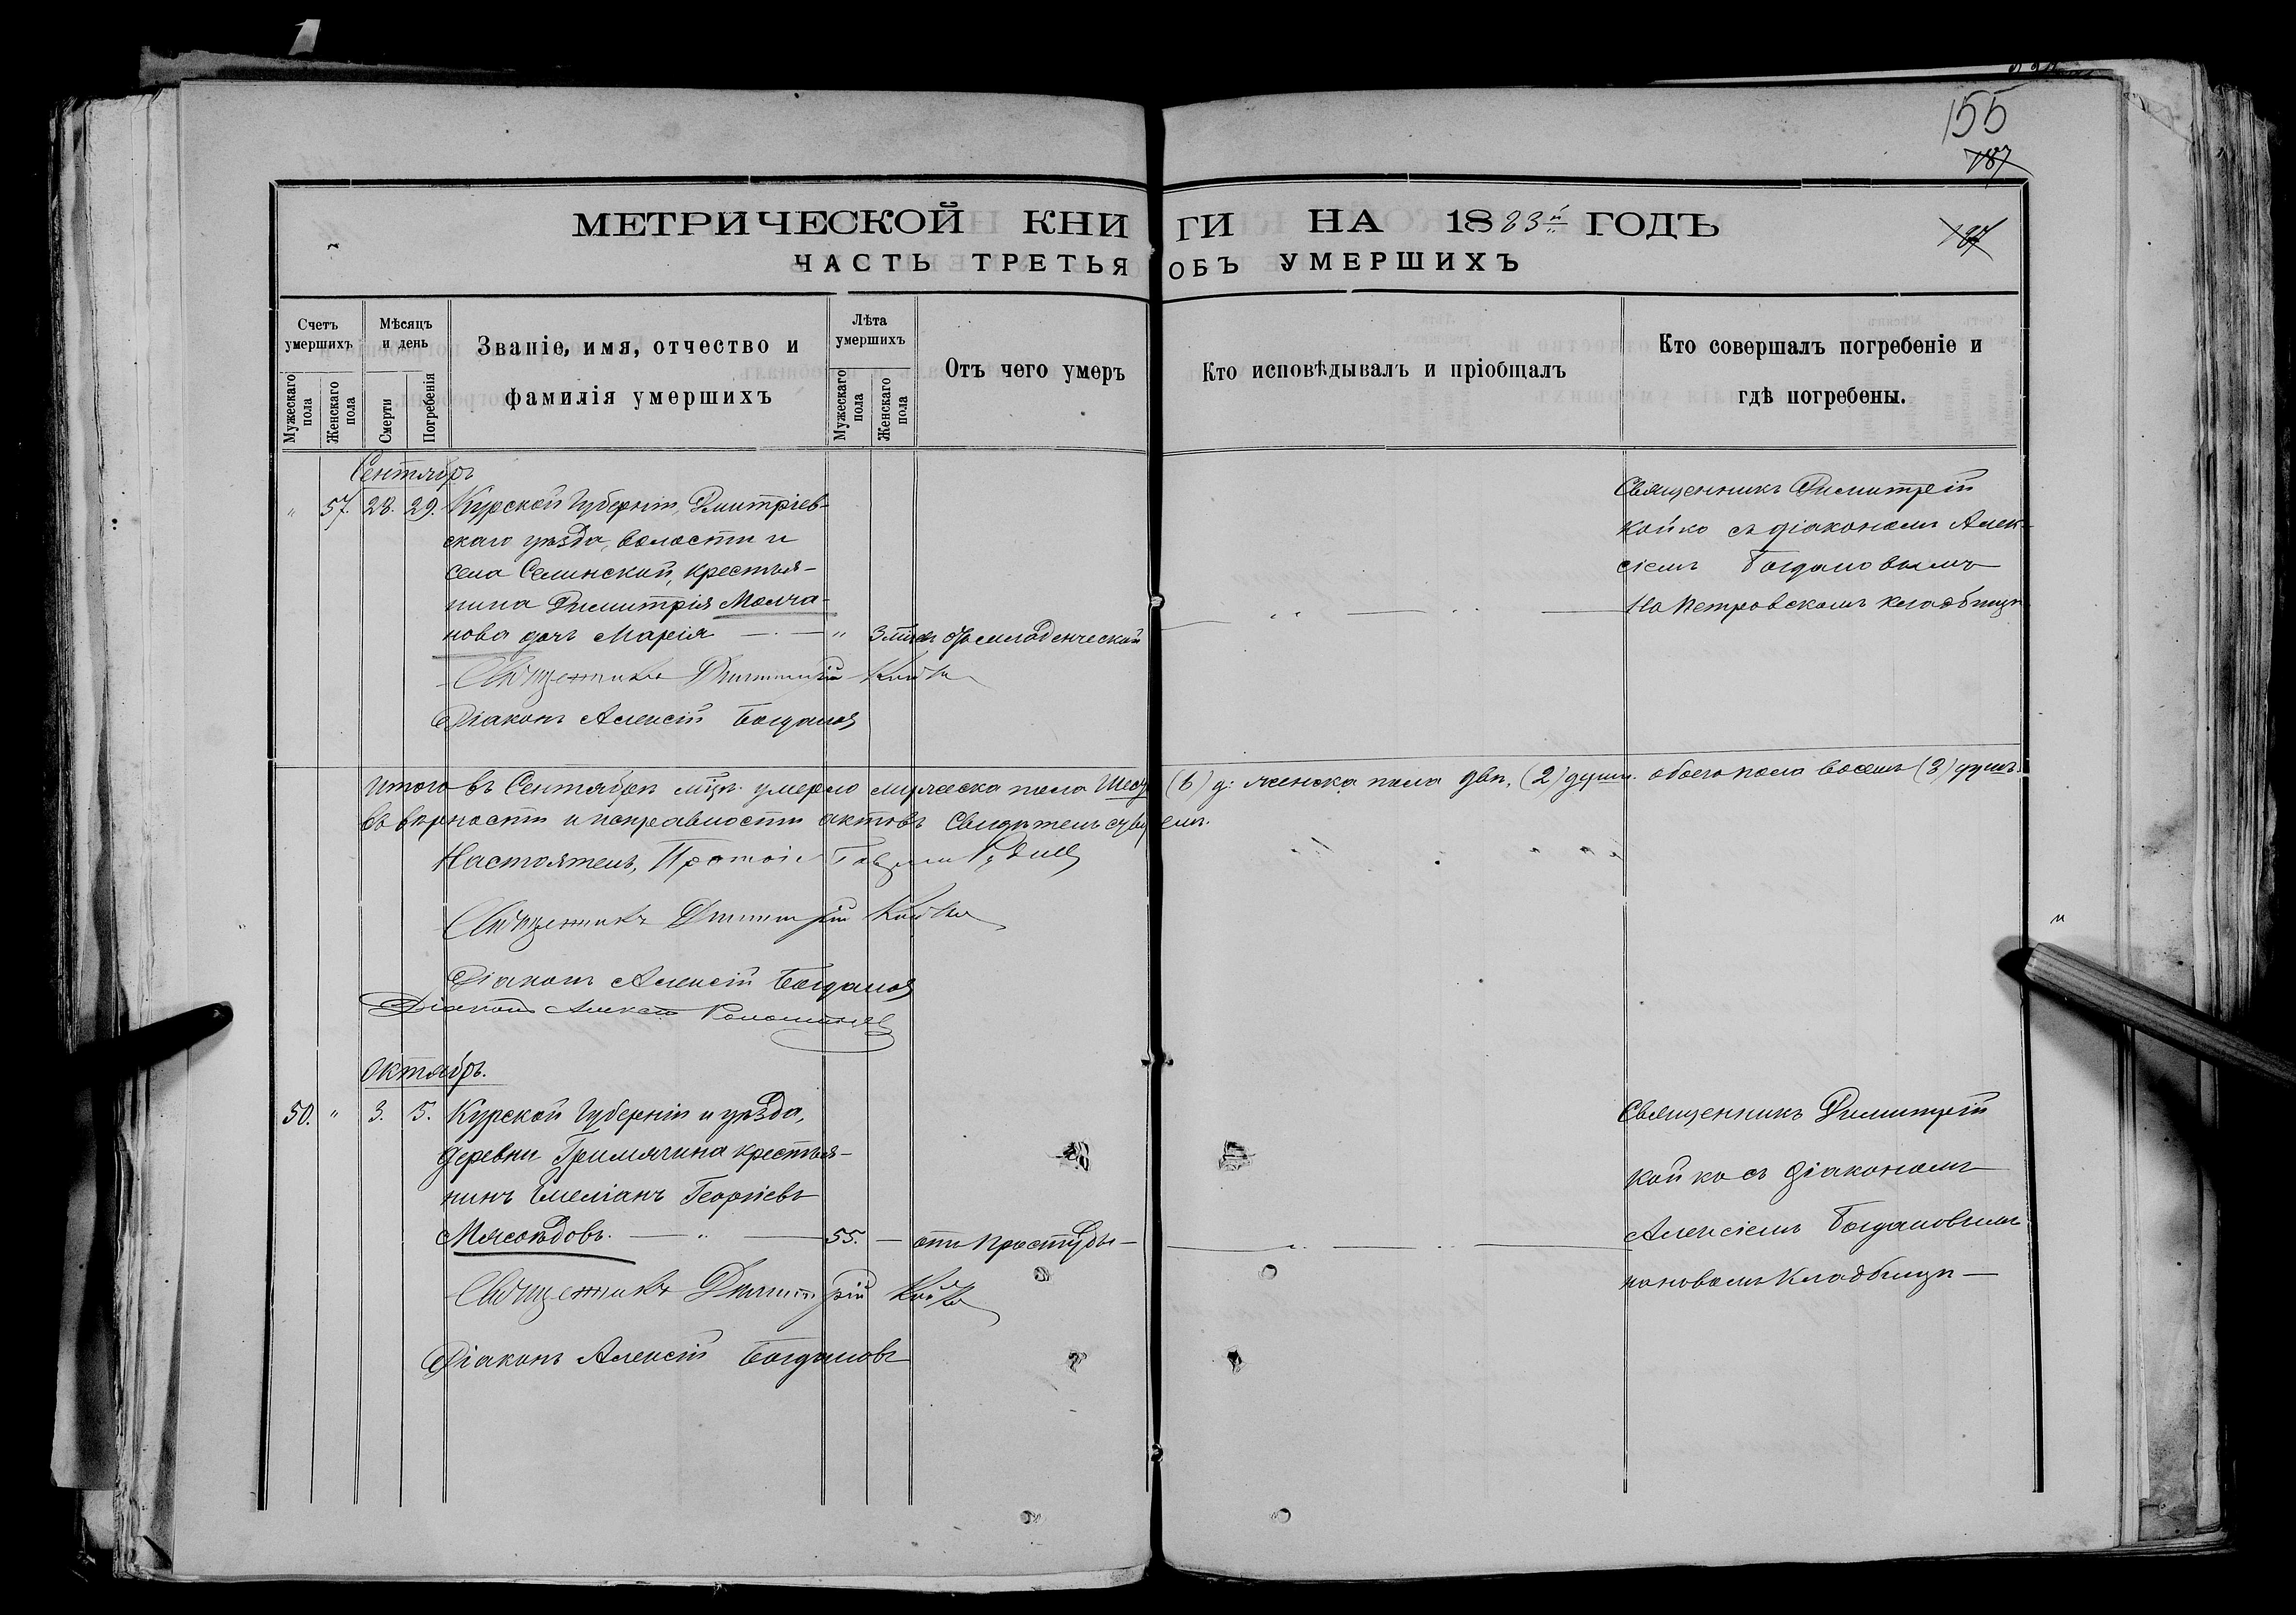 155
187
МЕТРИЧЕСКОЙ КНИГИ НА 1883й ГОДЪ
187
ЧАСТЬ ТРЕТЬЯ ОБЪ УМЕРШИХЪ
Счетъ умершихъ
Мужескаго пола
Женскаго пола
Мѣсяцъ и день
Смерти
Погребенія
Званіе, имя, отчество и
фамилія умершихъ
Лѣта умершихъ
Мужескаго пола
Женскаго пола
Отъ чего умеръ
Кто исповѣдывалъ и пріобщалъ
Кто совершалъ погребеніе и
гдѣ погребены.
Сентябрь
" 57. 28. 29. Курской Губерніи, Дмитріев-
скаго уѣзда, волости и
села Селинской, крестья-
нина Димитрія Молча-
нова дочь Марія — " 3 младенческой
Священникъ Димитрій Койко
Діаконъ Алексій Богданов
Священникъ Димитрій
Койко съ діакономъ Алек-
сіемъ Богдановымъ
На Петровскомъ кладбищѣ
Итого въ Сентябрѣ мцѣ умерло мужеска пола Шесть (6) д: женска пола двѣ, (2) души. обоего пола восемь (8) душъ.
Въ вѣрности и исправности актовъ Свидѣтельствуемъ.
Настоятель, Протоіе
Священникъ Димитрій Койко
Діаконъ Алексій Богданов
Діаконъ
Октябрь.
50. " 3. 5. Курской Губерніи и уѣзда,
деревни Гремячина крестья-
нинъ Емеліанъ Георгіевъ
Мясоѣдовъ. — " — 55. — отъ простуды —
Священникъ Димитрій Койко
Діаконъ Алексій Богдановъ
Священникъ Димитрій
Койко съ діакономъ
Алексіемъ Богдановымъ
на новомъ кладбищѣ —